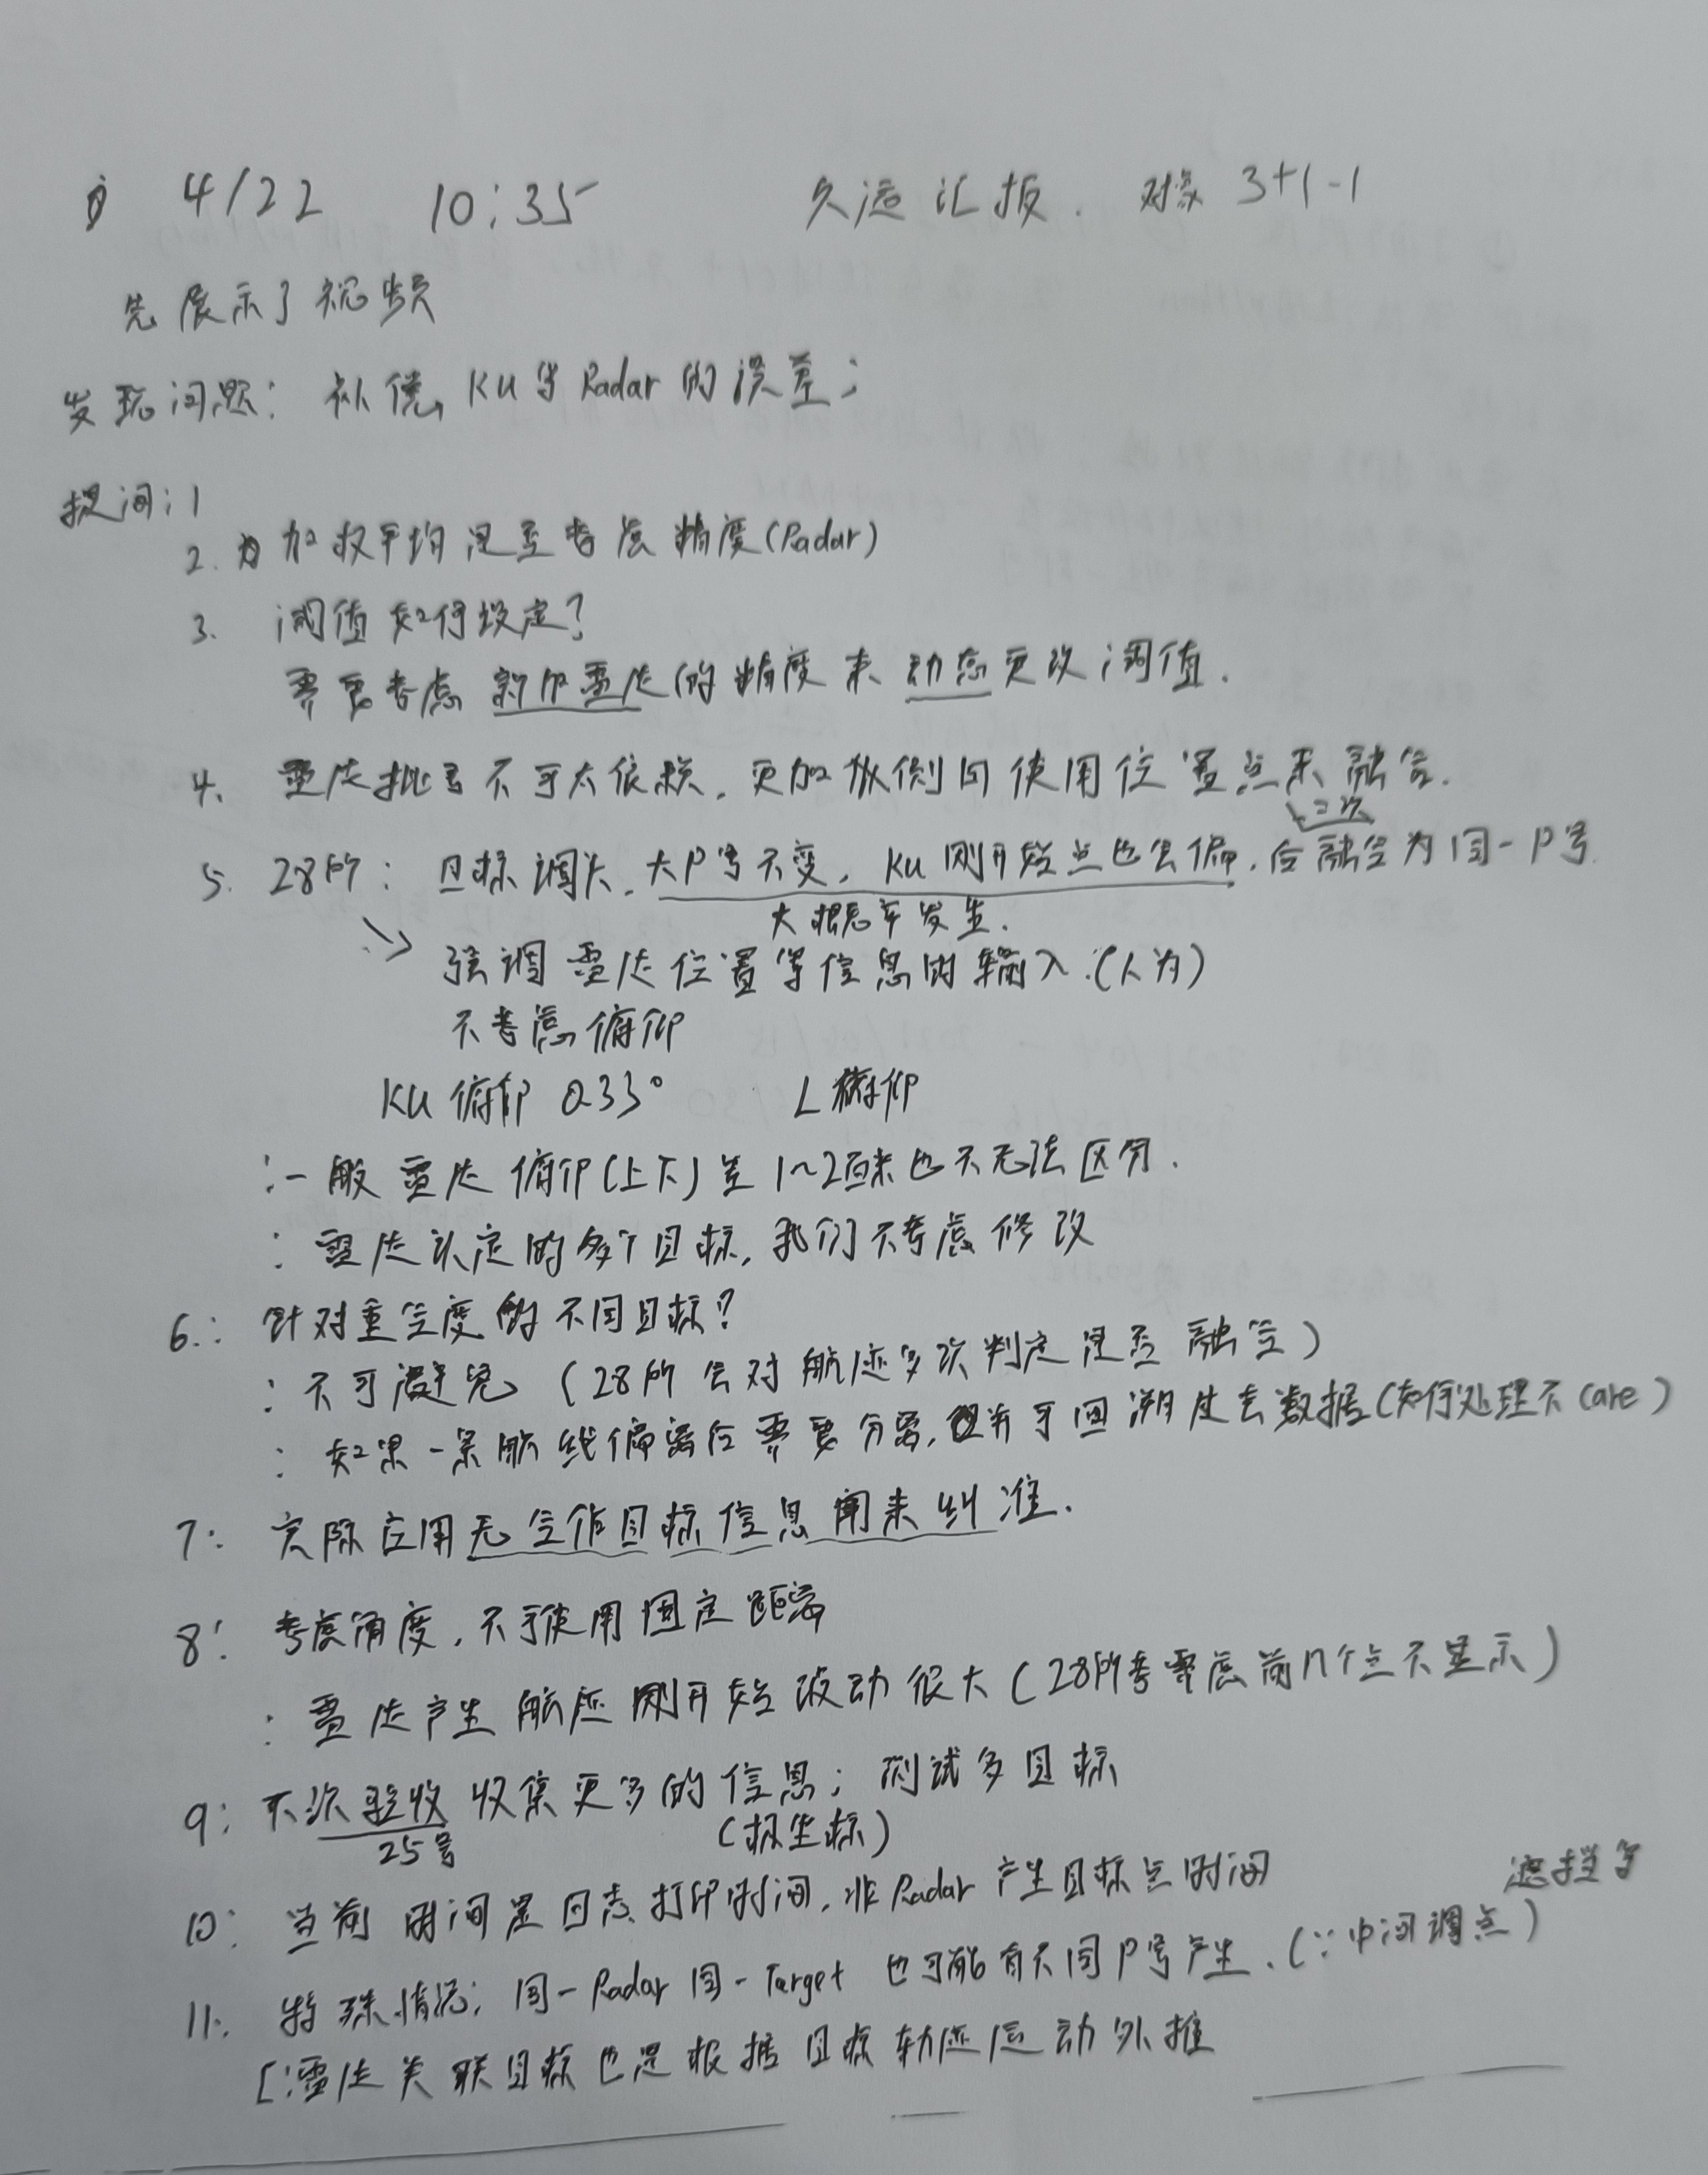 4/22 10:35 久远汇报. 对象 3+1-1
先展示了视频
发现问题: 补偿 KU与Radar的误差;
提问: 1
2. 加权平均是否考虑精度(Radar)
3. 阈值如何设定?
需要考虑新加雷达的精度来动态更改阈值.
4. 雷达批号不可太依赖, 更加依侧向使用位置点来融合.
二次
5. 28所: 目标调头, 大P号不变, KU刚开始点也会偏, 后融合为同一P号.
大概率发生.
强调雷达位置等信息的输入.(人为)
不考虑俯仰
KU俯仰 0.33° L俯仰
: 一般雷达俯仰(上下)差1~2百米也无法区分.
: 雷达认定的多个目标, 我们不考虑修改
6.: 针对重合度的不同目标?
: 不可避免 (28所会对航迹多次判定是否融合)
: 如果一条航线偏离后需要分离, 并可回溯过去数据(如何处理不care)
7: 实际应用无合作目标信息用来纠准.
8: 考虑角度, 不可使用固定距离
: 雷达产生航迹刚开始波动很大 (28所考虑前n个点不显示)
9: 下次验收收集更多的信息; 测试多目标
25号 (极坐标)
10: 当前时间是日志打印时间, 非Radar产生目标点时间
遮挡等
11. 特殊情况: 同一Radar同一Target 也可能有不同P号产生. (∵中间漏点)
[:雷达关联目标也是根据目标轨迹运动外推